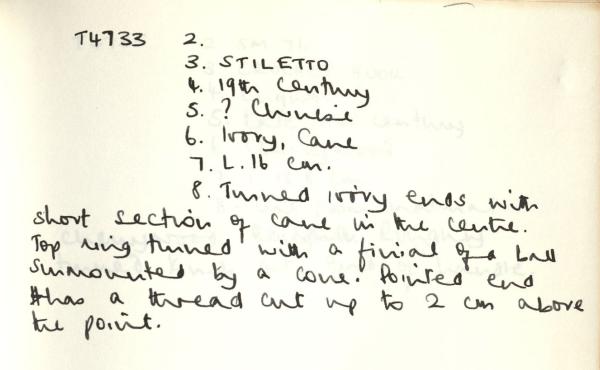 T4733 2.
3. STILETTO
4. 19th Century
5. ? Chinese
6. Ivory, Cane
7. L. 16 cm.
8. Turned ivory ends with
short section of cane in the centre.
Top ring turned with a finial of a ball
surmounted by a cone. Pointed end
has a thread cut up to 2 cm above
the point.